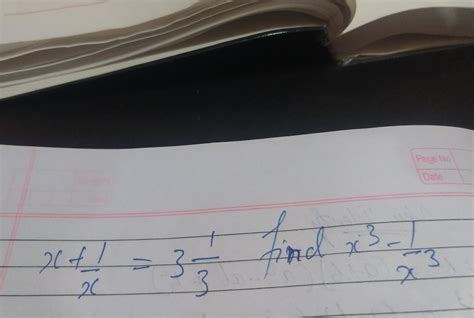 Page No
Date
x + 1/x = 3 1/3 find x³ - 1/x³